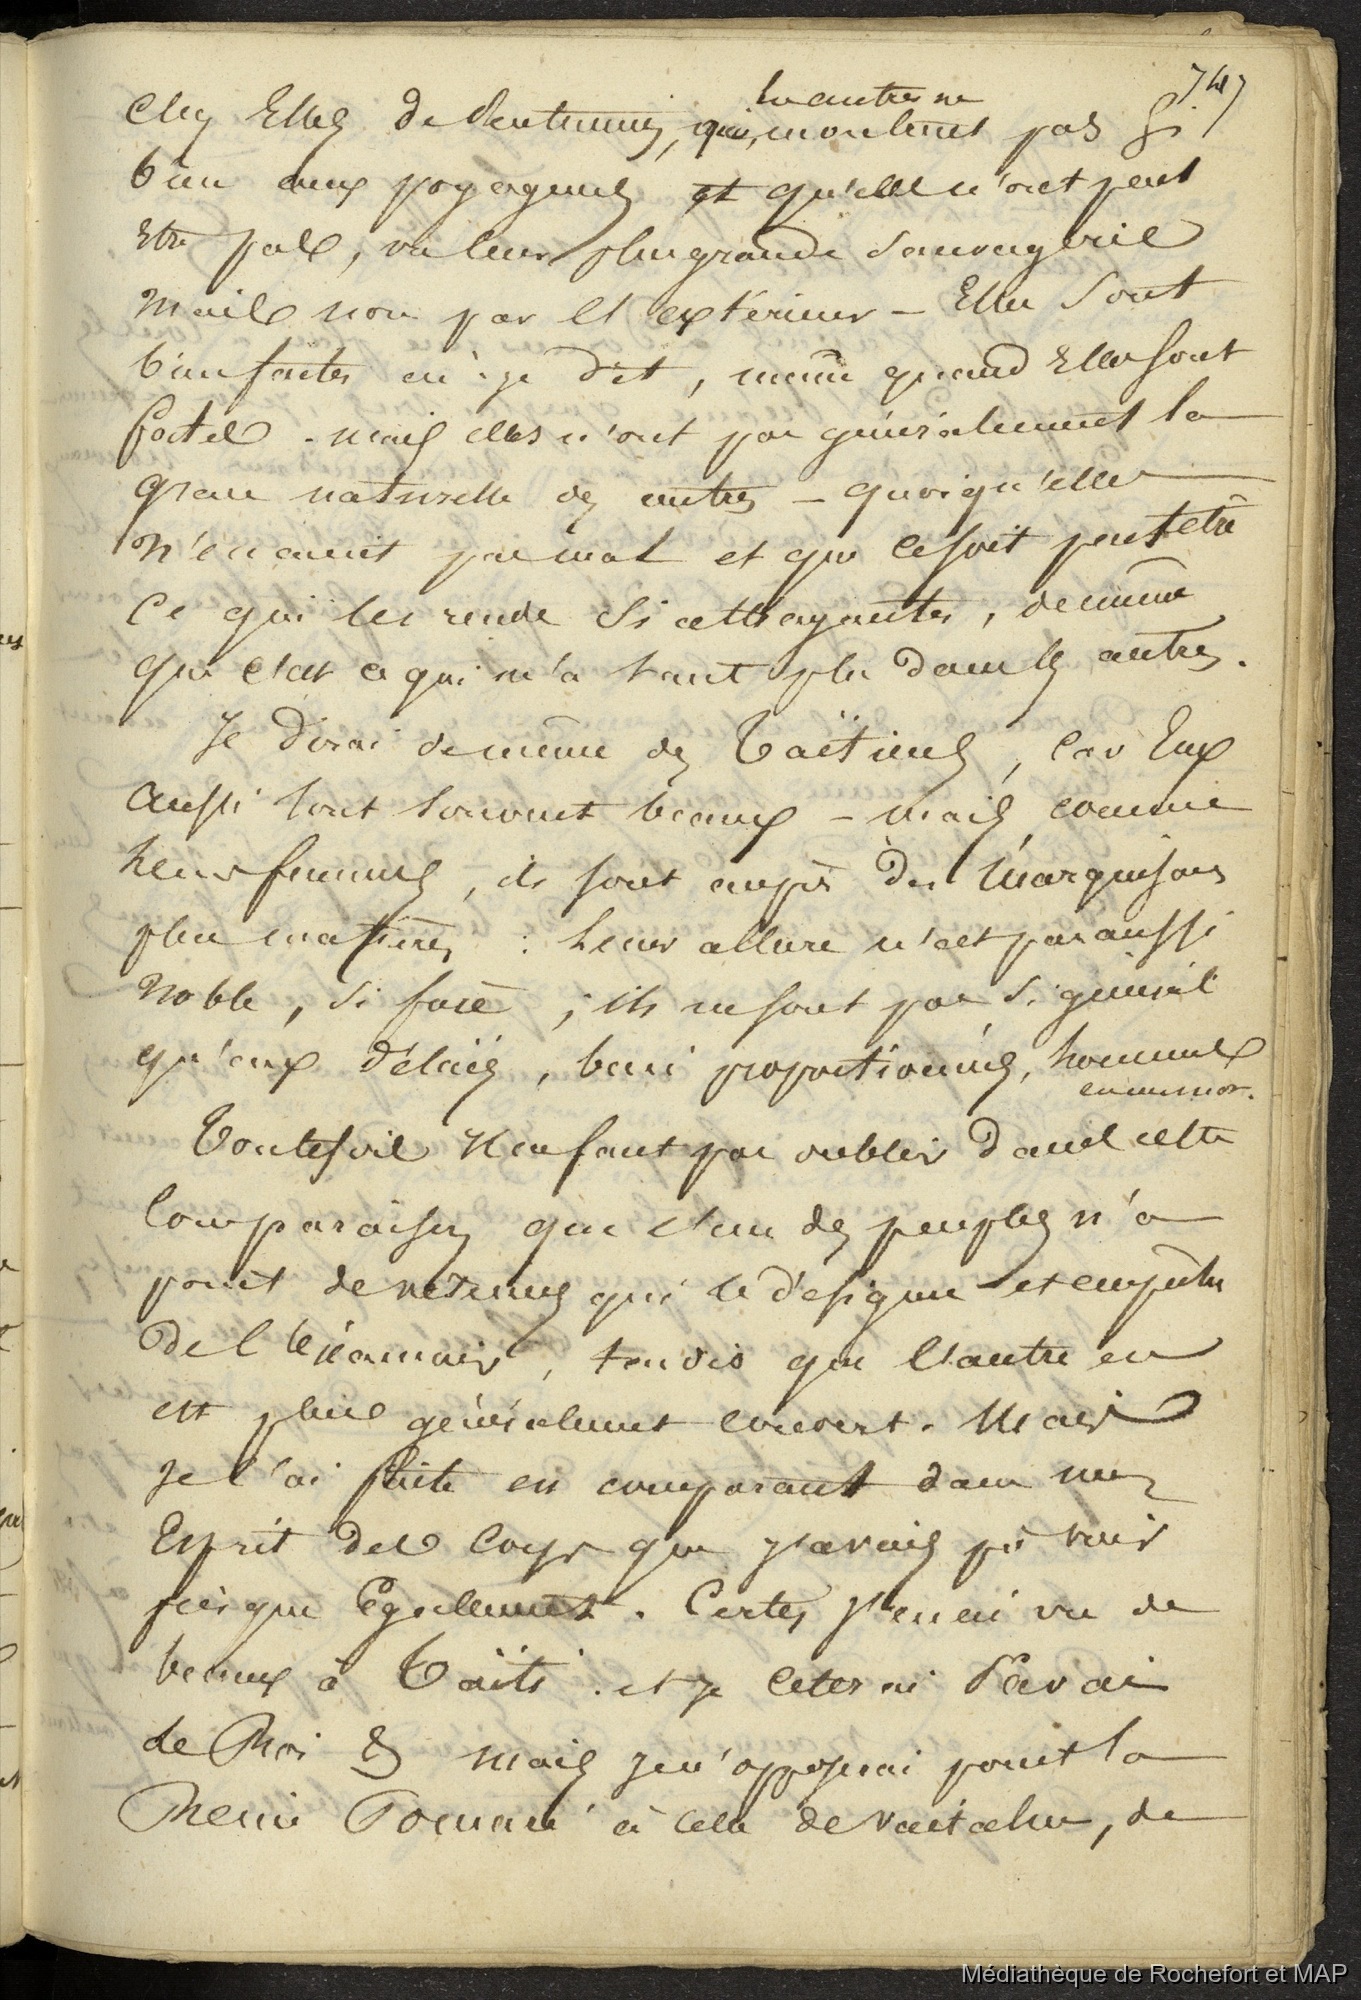 747
les autres ne
chez Elles de sentiments, qui, montrent pas si
bien aux voyageurs et qu'elles n'ont peut
Etre pas, vu leur plus grande sauvagerie
mais non par l'extérieur - Elles sont
bien faites ai-je dit, même quand Elles sont
fortes. mais elles n'ont pas généralement la
grace naturelle des autres - quoiqu'elles
n'en aient pas mal et que ce soit peut être
ce qui les rende si attrayantes, de même
que c'est ce qui m'a tant plu dans les autres.
Je dirai de même des Taïtiens, car Eux
aussi sont souvent beaux - mais, comme
leurs femmes, ils sont auprès des Marquisans
plus matériels : leur allure n'est pas aussi
noble, si fière ; ils ne sont pas si général
qu'eux déliés, bien proportionnés, hommes
en un mot.
Toutefois il ne faut pas oublier dans cette
comparaison que l'un des peuples n'a
point de vêtements qui le désigne et empêche
de l'examiner, tandis que l'autre en
est plus généralement couvert. Mais
je l'ai faite en comparant dans mon
Esprit des corps que j'avais pu voir
presque Egalement. Certes j'en ai vu de
beaux à Taïti. et je citerai Pavai
le Roi & mais je n'opposerai point la
Reine Pomaré à celle de Vaitahu, de